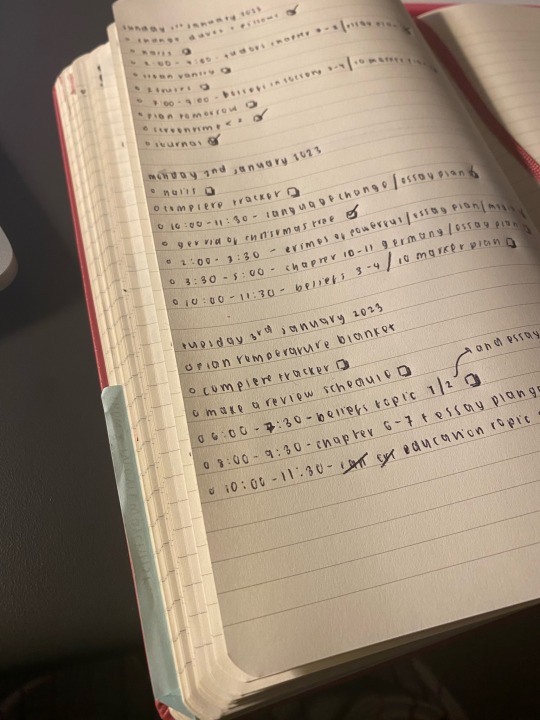 sunday 1st january 2023
o change duvet + pillows
o nails
o 2:00 - 3:30 - tudors chapter
o clean vanity
o 2 hours
o 7:00 - 9:00 - beliefs in society 3-4 / 10 marker plan
o plan tomorrow
o screentime <
o journal
monday 2nd january 2023
o nails
o complete tracker
o 10:00 - 11:30 - language change / essay plan
o get rid of christmas tree
o 2:00 - 3:30 - crimes of powerful / essay plan /
o 3:30 - 5:00 - chapter 10-11 germany / essay plan
o 10:00 - 11:30 - beliefs 3-4 / 10 marker plan
tuesday 3rd january 2023
o plan temperature blanket
o complete tracker
o make a review schedule
o 6:00 - 7:30 - beliefs topic 1/2 and essay
o 8:00 - 9:30 - chapter 6-7 + essay plan
o 10:00 - 11:30 - education topic